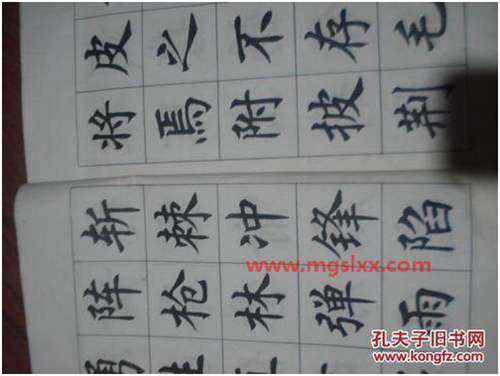 皮之不存毛
将焉附披荆
斩棘冲锋陷
www.mgslxx.com
阵枪林弹雨
孔夫子旧书网
www.kongfz.com